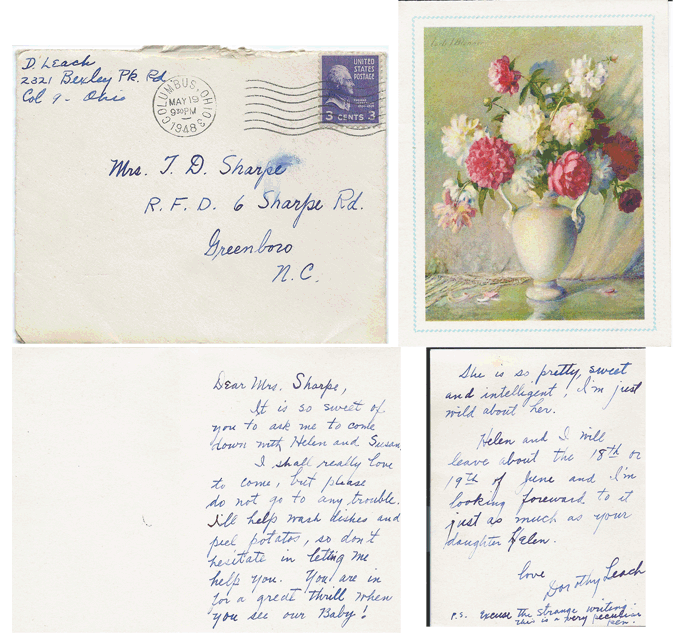 D. Leach
2321 Bexley Pk. Rd.
Col 9 - Ohio
COLUMBUS, OHIO
MAY 19
9 30 PM
1948
UNITED
STATES
POSTAGE
3 CENTS 3
Mrs. T. D. Sharpe
R. F. D. 6 Sharpe Rd.
Greenboro
N.C.
Dear Mrs. Sharpe,
It is so sweet of
you to ask me to come
down with Helen and Susan
I shall really love
to come, but please
do not go to any trouble.
I'll help wash dishes and
peel potatos, so don't
hesitate in letting me
help you. You are in
for a great thrill when
you see our Baby!
She is so pretty, sweet
and intelligent, I'm just
wild about her.
Helen and I will
leave about the 18th or
19th of June and I'm
looking foreward to it
just as much as your
daughter Helen.
love
Dorothy Leach
P.S. Excuse the strange writing -
this is a very peculiar
pen.